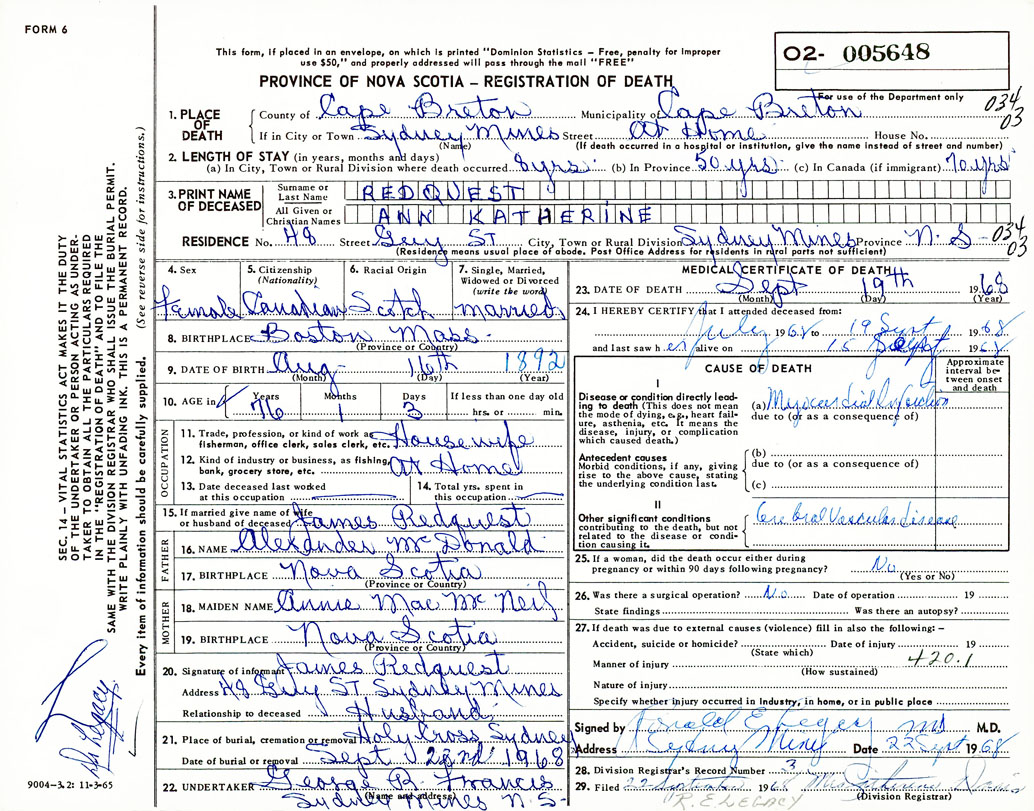 FORM 6
O2- 005648
This form, if placed in an envelope, on which is printed "Dominion Statistics – Free, penalty for improper
use $50," and properly addressed will pass through the mail "FREE"
PROVINCE OF NOVA SCOTIA – REGISTRATION OF DEATH
For use of the Department only
034
03
1. PLACE OF DEATH County of Cape Breton Municipality of Cape Breton
If in City or Town Sydney Mines Street At Home House No.
(Name) (If death occurred in a hospital or institution, give the name instead of street and number)
2. LENGTH OF STAY (in years, months and days)
(a) In City, Town or Rural Division where death occurred 8 yrs. (b) In Province 50 yrs. (c) In Canada (if immigrant) 70 yrs
3. PRINT NAME OF DECEASED Surname or Last Name REDQUEST
All Given or Christian Names ANN KATHERINE
RESIDENCE No. 48 Street Guy ST City, Town or Rural Division Sydney Mines Province N. S- 034
03
(Residence means usual place of abode. Post Office Address for residents in rural parts not sufficient)
4. Sex Female
5. Citizenship (Nationality) Canadian
6. Racial Origin Scotch
7. Single, Married, Widowed or Divorced (write the word) married
8. BIRTHPLACE Boston Mass.
(Province or Country)
9. DATE OF BIRTH Aug 16th 1892
(Month) (Day) (Year)
10. AGE in Years 76 Months 1 Days 3 If less than one day old hrs. or min.
OCCUPATION
11. Trade, profession, or kind of work as fisherman, office clerk, sales clerk, etc. Housewife
12. Kind of industry or business, as fishing, bank, grocery store, etc. At Home
13. Date deceased last worked at this occupation
14. Total yrs. spent in this occupation
15. If married give name of wife or husband of deceased James Redquest
FATHER
16. NAME Alexander McDonald
17. BIRTHPLACE Nova Scotia
(Province or Country)
MOTHER
18. MAIDEN NAME Annie Mac McNeil
19. BIRTHPLACE Nova Scotia
(Province or Country)
20. Signature of informant James Redquest
Address 48 Guy ST Sydney Mines
Relationship to deceased Husband
21. Place of burial, cremation or removal Holy Cross, Sydney
Date of burial or removal Sept 22nd 1968
22. UNDERTAKER George B. Francis
(Name and address)
Sydney Mines N. S-
MEDICAL CERTIFICATE OF DEATH
23. DATE OF DEATH Sept 19th 1968
(Month) (Day) (Year)
24. I HEREBY CERTIFY that I attended deceased from:
July 1968 to 19 Sept 1968
and last saw her alive on 15 Sept 1968
CAUSE OF DEATH
Approximate interval between onset and death
I
Disease or condition directly leading to death (This does not mean the mode of dying, e.g., heart failure, asthenia, etc. It means the disease, injury, or complication which caused death.)
(a) Myocardial Infarction
due to (or as a consequence of)
Antecedent causes
Morbid conditions, if any, giving rise to the above cause, stating the underlying condition last.
(b)
due to (or as a consequence of)
(c)
II
Other significant conditions contributing to the death, but not related to the disease or condition causing it.
Cerebral Vascular disease
25. If a woman, did the death occur either during
pregnancy or within 90 days following pregnancy? No
(Yes or No)
26. Was there a surgical operation? No Date of operation 19
State findings Was there an autopsy?
27. If death was due to external causes (violence) fill in also the following: –
Accident, suicide or homicide? Date of injury 19
(State which)
Manner of injury 420.1
(How sustained)
Nature of injury
Specify whether injury occurred in industry, in home, or in public place
Signed by M.D.
Address Sydney Mines Date 22 Sept 1968
28. Division Registrar's Record Number 3
29. Filed 22 September 1968
(Division Registrar)
R. E. LEGACY
SEC. 14 – VITAL STATISTICS ACT MAKES IT THE DUTY
OF THE UNDERTAKER OR PERSON ACTING AS UNDER-
TAKER TO OBTAIN ALL THE PARTICULARS REQUIRED
IN THE "REGISTRATION OF DEATH" AND TO FILE THE
SAME WITH THE DIVISION REGISTRAR WHO SHALL ISSUE THE BURIAL PERMIT.
WRITE PLAINLY WITH UNFADING INK. THIS IS A PERMANENT RECORD.
Every item of information should be carefully supplied. (See reverse side for instructions.)
Dr Legacy
9004-3.2: 11-3-65